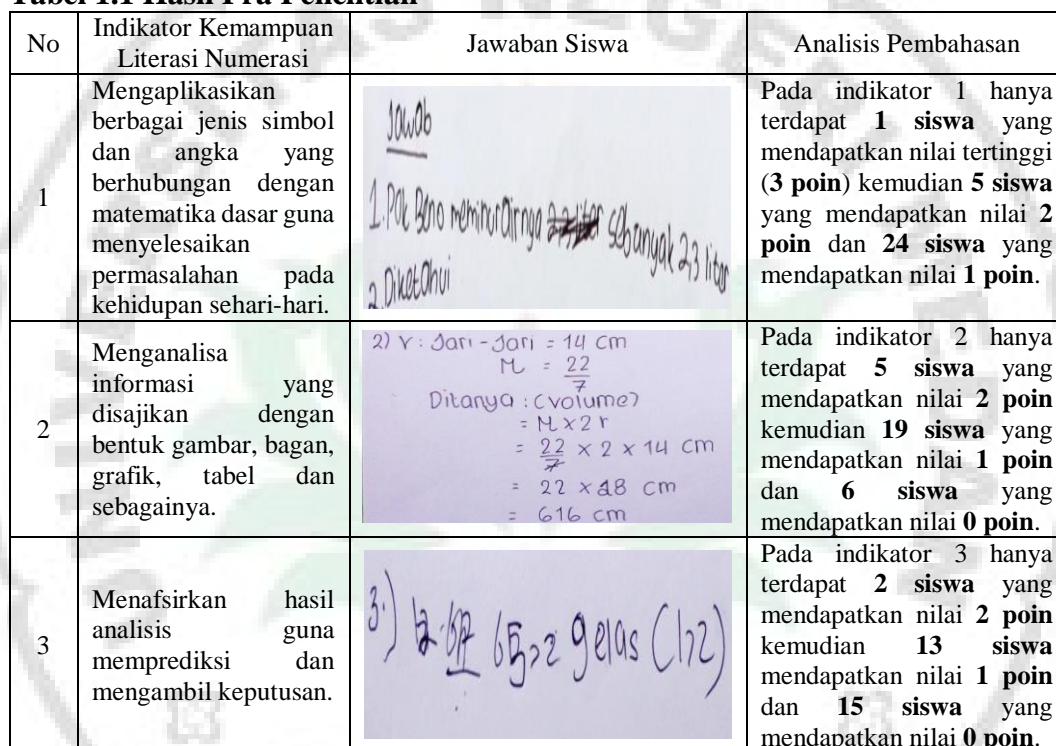 Tabel 1.1 Hasil Pra Penelitian
No
Indikator Kemampuan
Literasi Numerasi
Jawaban Siswa
Analisis Pembahasan
1
Mengaplikasikan
berbagai jenis simbol
dan angka yang
berhubungan dengan
matematika dasar guna
menyelesaikan
permasalahan pada
kehidupan sehari-hari.
Jawab
1. Pak Beno meminum airnya sebanyak 2,3 liter
2. Diketahui
Pada indikator 1 hanya
terdapat 1 siswa yang
mendapatkan nilai tertinggi
(3 poin) kemudian 5 siswa
yang mendapatkan nilai 2
poin dan 24 siswa yang
mendapatkan nilai 1 poin.
2
Menganalisa
informasi yang
disajikan dengan
bentuk gambar, bagan,
grafik, tabel dan
sebagainya.
2) r : Jari - Jari = 14 cm
= 22
7
Ditanya : (volume)
× 2 r
= 22/7 × 2 × 14 cm
= 22 × 28 cm
= 616 cm
Pada indikator 2 hanya
terdapat 5 siswa yang
mendapatkan nilai 2 poin
kemudian 19 siswa yang
mendapatkan nilai 1 poin
dan 6 siswa yang
mendapatkan nilai 0 poin.
3
Menafsirkan hasil
analisis guna
memprediksi dan
mengambil keputusan.
3.) gelas (1,2)
Pada indikator 3 hanya
terdapat 2 siswa yang
mendapatkan nilai 2 poin
kemudian 13 siswa
mendapatkan nilai 1 poin
dan 15 siswa yang
mendapatkan nilai 0 poin.